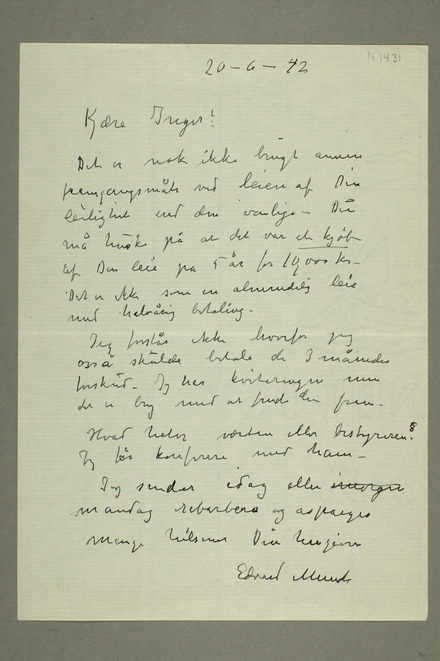 N 1431
20-6-42
Kjære Inger!
Det er nok ikke brugt annen
fremgangsmåte ved leien af Din
leilighet end den vanlige – Du
må huske på at det var et kjøb
af Din leie på 5 år for 10,000 kr –
Det er ikke som en almindelig leie
med halvårig betaling –
Jeg forstår ikke hvorfor jeg
også skulde betale de 3 måneder
forskud – Jeg har kvitteringen men
det er bry med at finde den frem –
Hvad heter verten eller bestyreren?
Jeg får konferere med ham –
Jeg sender idag eller imorgen
mandag rabarbera og asparges
Mange hilsener Din hengivne
Edvard Munch